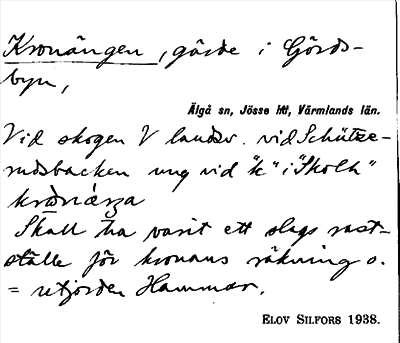 Kronängen, gärde i Gärds-
byn,
Älgå sn, Jösse hd, Värmlands län.
Vid skogen V landsv. vid Schütze-
rudsbacken ung vid "k" i "Skolh"
Skall ha varit ett slags rast-
ställe för kronans räkning o.
= Hammar.
ELOV SILFORS 1938.